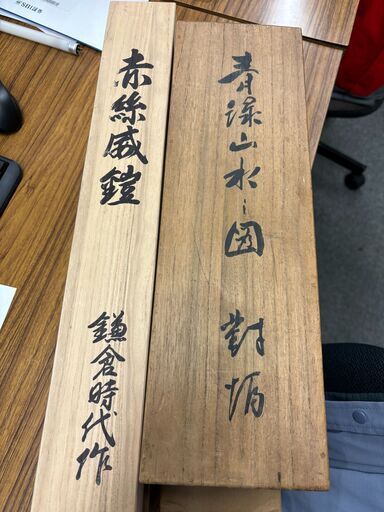 青緑山水之図 對幅
赤絲威鎧
鎌倉時代作